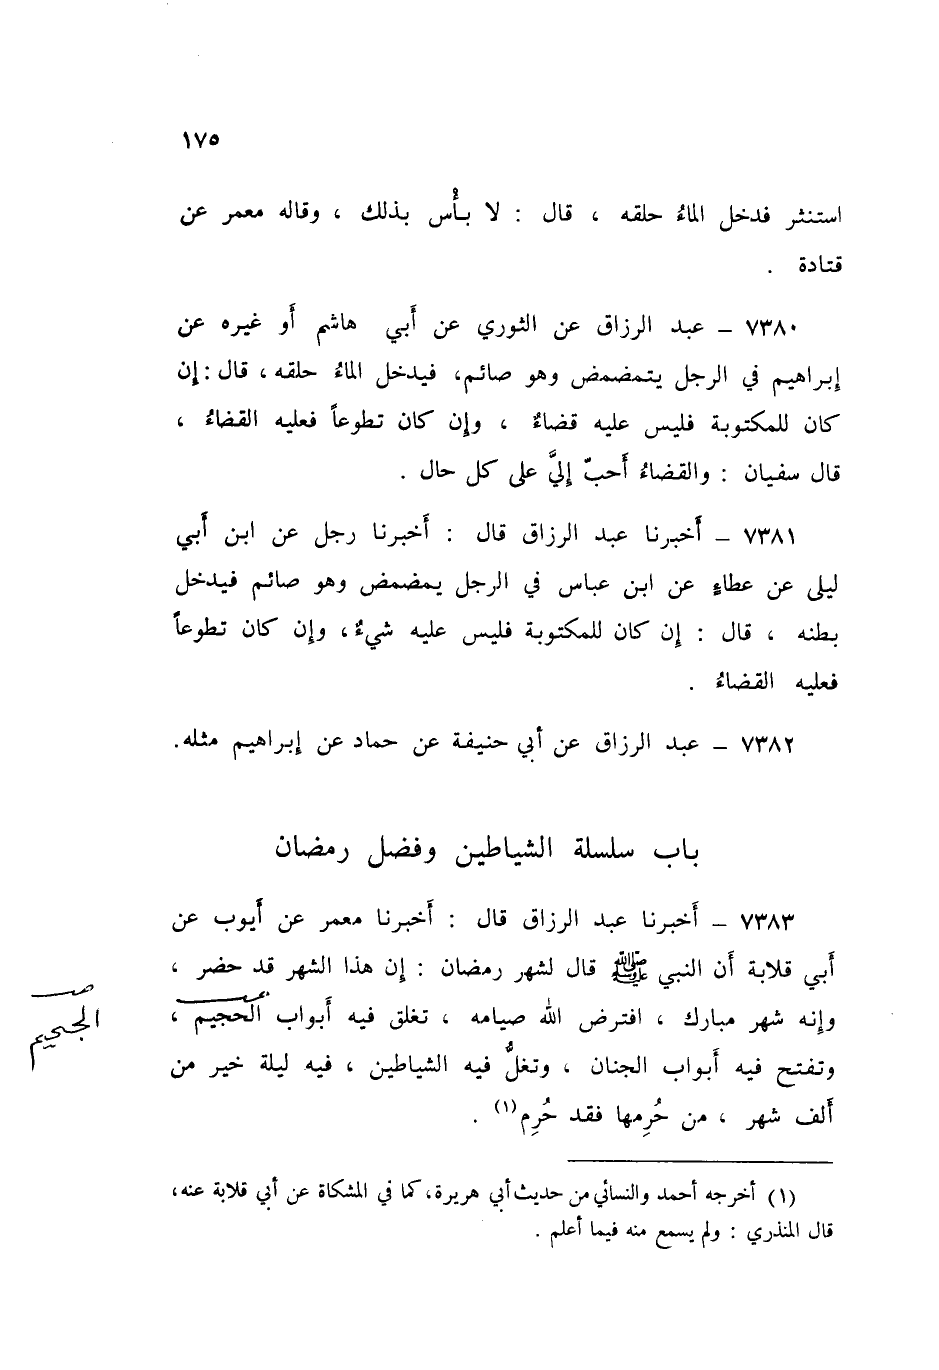 ١٧٥
استنثر فدخل الماءُ حلقه ، قال : لا بأْس بذلك ، وقاله معمر عن
قتادة .
٧٣٨٠ – عبد الرزاق عن الثوري عن أَبي هاشم أَو غيره عن
إبراهيم في الرجل يتمضمض وهو صائم، فيدخل الماءُ حلقه ، قال : إن
كان للمكتوبة فليس عليه قضاءٌ ، وإن كان تطوعاً فعليه القضاءُ ،
قال سفيان : والقضاءُ أَحبّ إليَّ على كل حال .
٧٣٨١ – أَخبرنا عبد الرزاق قال : أَخبرنا رجل عن ابن أَبي
ليلى عن عطاءٍ عن ابن عباس في الرجل يمضمض وهو صائم فيدخل
بطنه ، قال : إن كان للمكتوبة فليس عليه شيءٌ ، وإن كان تطوعاً
فعليه القضاءُ .
٧٣٨٢ – عبد الرزاق عن أَبي حنيفة عن حماد عن إبراهيم مثله .
باب سلسلة الشياطين وفضل رمضان
٧٣٨٣ – أَخبرنا عبد الرزاق قال : أَخبرنا معمر عن أَيوب عن
أَبي قلابة أَن النبي ﷺ قال لشهر رمضان : إن هذا الشهر قد حضر ،
وإنه شهر مبارك ، افترض الله صيامه ، تغلق فيه أَبواب الحجيم ،
صـ الجحيم
وتفتح فيه أَبواب الجنان ، وتغلُّ فيه الشياطين ، فيه ليلة خير من
أَلف شهر ، من حُرِمها فقد حُرِم(١) .
(١) أخرجه أحمد والنسائي من حديث أبي هريرة، كما في المشكاة عن أبي قلابة عنه،
قال المنذري : ولم يسمع منه فيما أعلم .